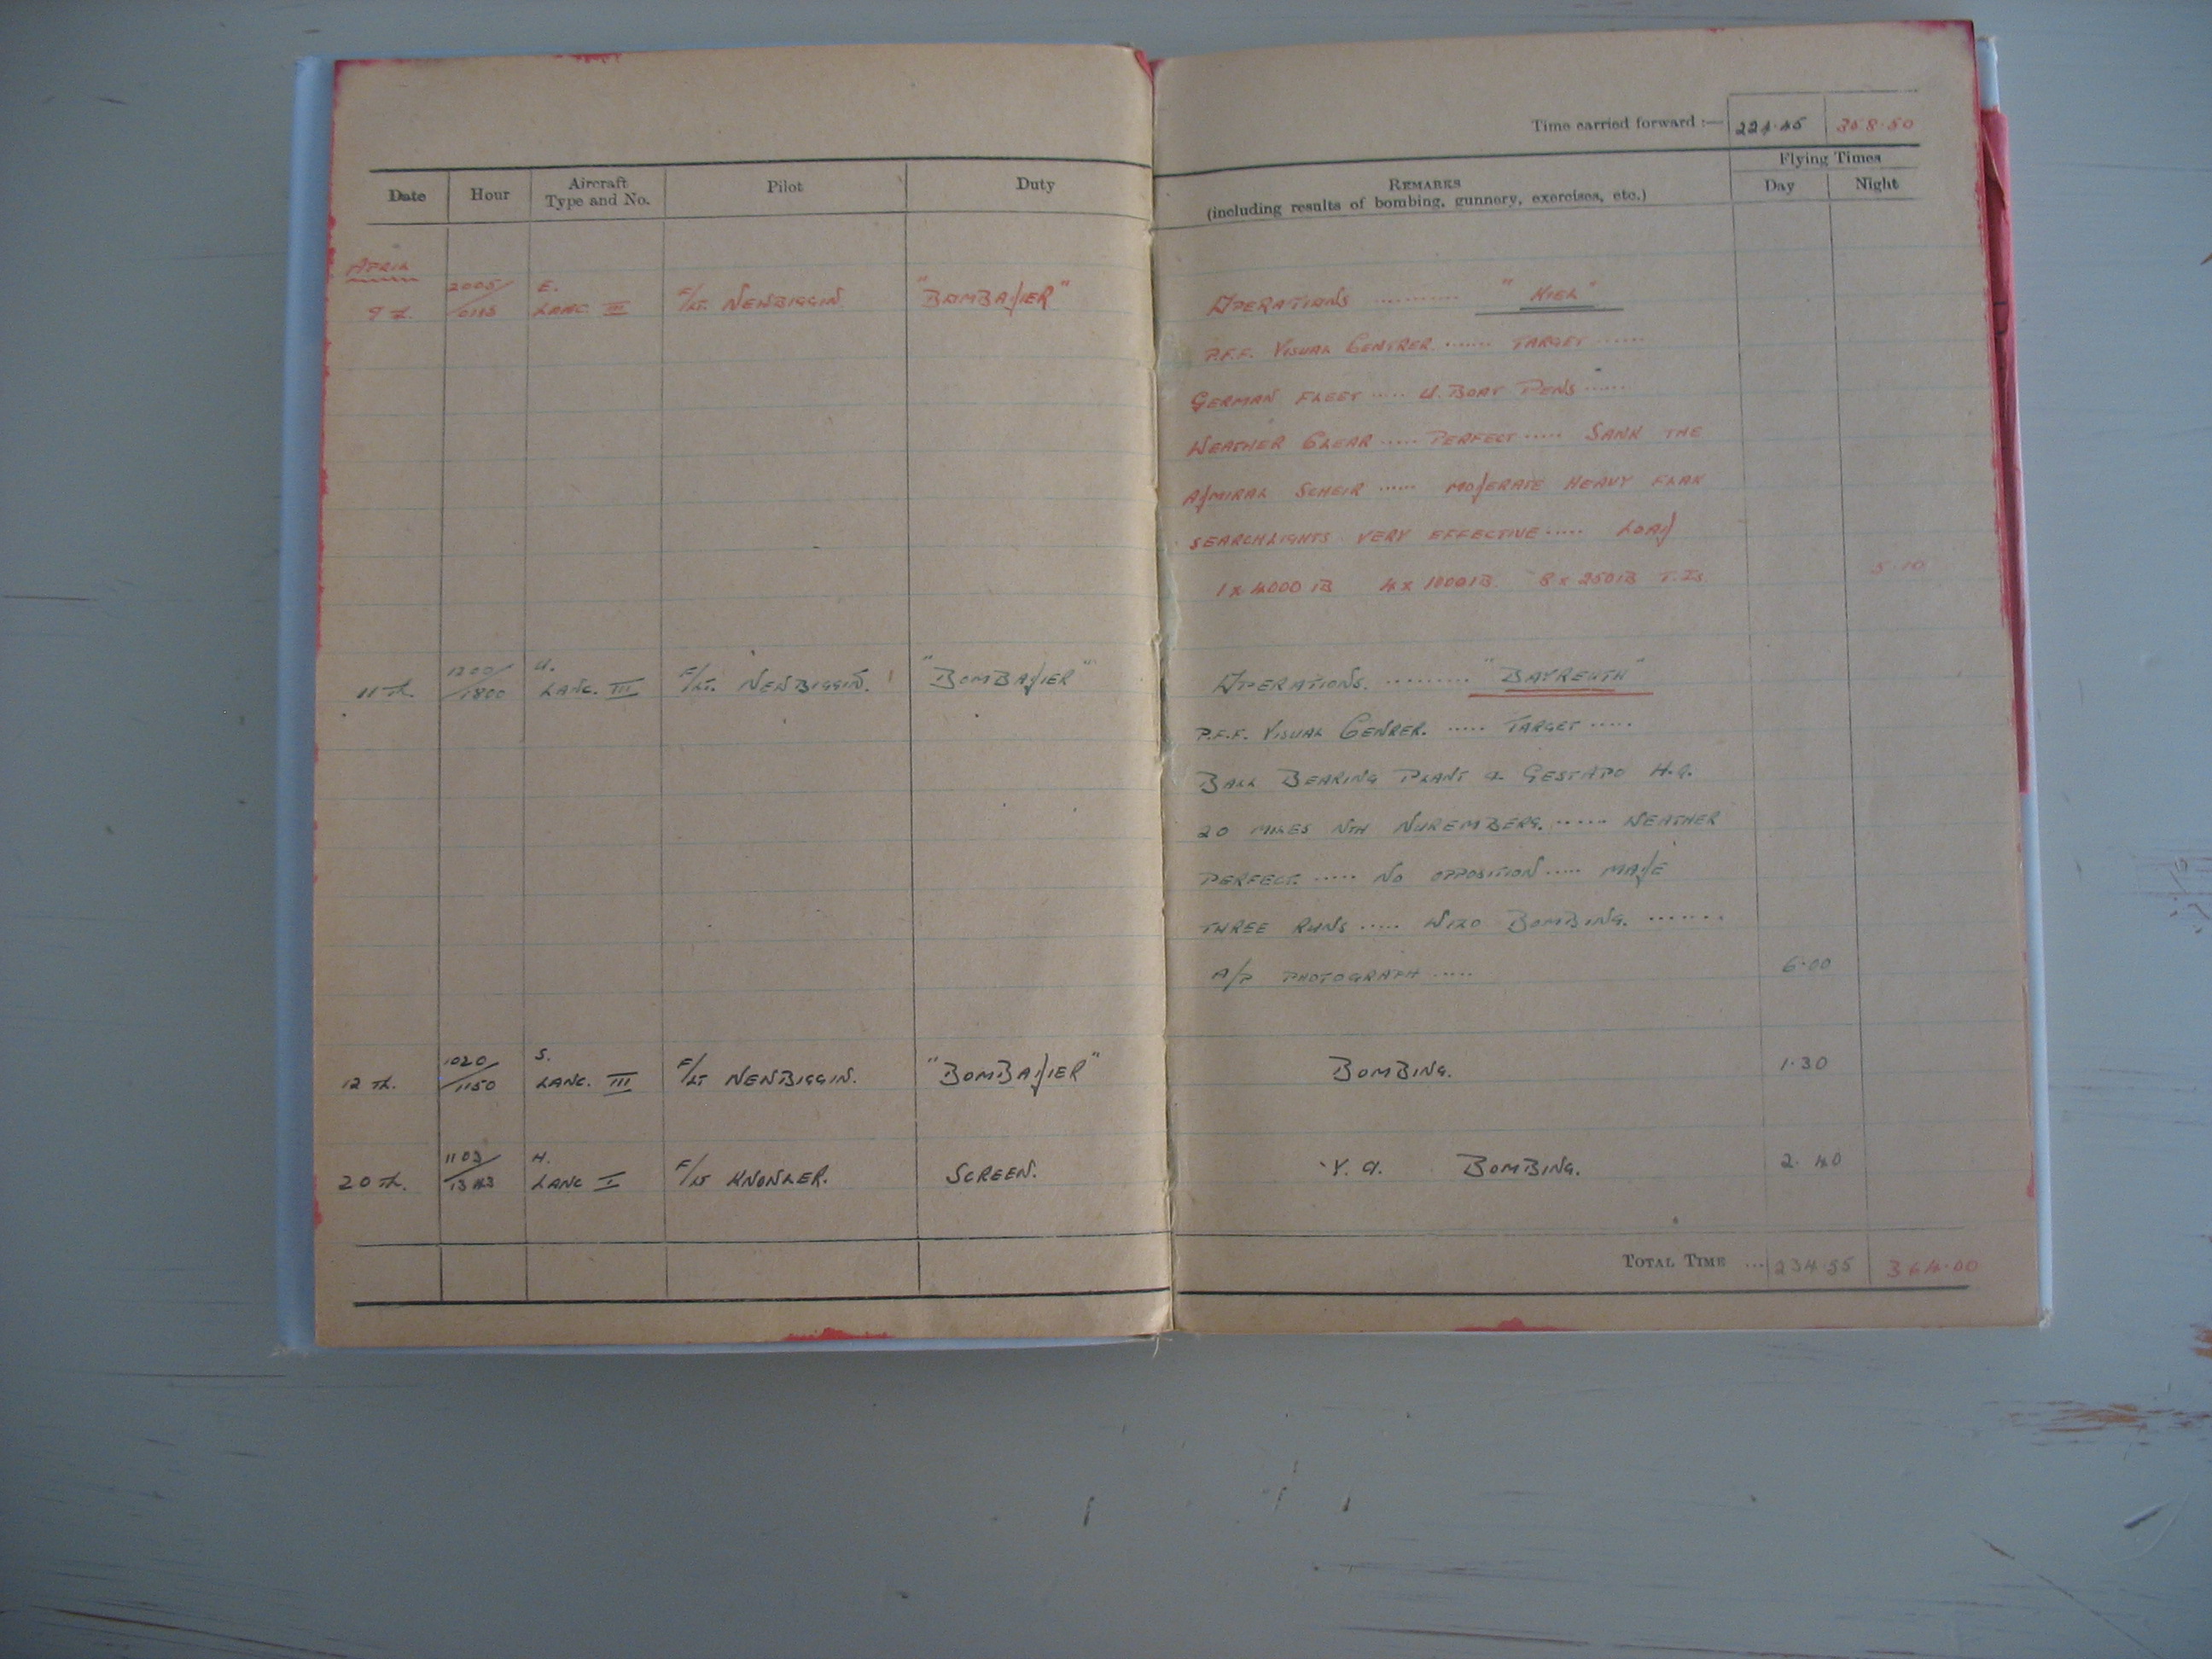 Time carried forward :— 224.45 358.50
Date Hour Aircraft Type and No. Pilot Duty
REMARKS
(including results of bombing, gunnery, exercises, etc.)
Flying Times
Day Night
APRIL
9 th. 2005/0115 E. LANC. III F/LT. NEWBIGGIN "BOMBADIER"
OPERATIONS .......... "KIEL"
P.F.F. VISUAL CENTRER ...... TARGET ......
GERMAN FLEET ..... U. BOAT PENS ......
WEATHER CLEAR ..... PERFECT ..... SANK THE
ADMIRAL SCHEIR ...... MODERATE HEAVY FLAK
SEARCHLIGHTS VERY EFFECTIVE ..... LOAD
1 x 4000 lB 4 x 1000 lB. 8 x 250 lB T.Is. 5.10
11 th. 1200/1800 U. LANC. III F/LT. NEWBIGGIN. "BOMBADIER"
OPERATIONS. ......... "BAYREUTH"
P.F.F. VISUAL CENRER. ..... TARGET .....
BALL BEARING PLANT & GESTAPO H.Q.
20 MILES NTH NUREMBERG. ...... WEATHER
PERFECT. ..... NO OPPOSITION ..... MADE
THREE RUNS ..... WIZO BOMBING. .......
A/P PHOTOGRAPH ..... 6.00
12 th. 1020/1150 S. LANC. III F/LT NEWBIGGIN. "BOMBADIER" BOMBING. 1.30
20 th. 1103/1343 H. LANC I F/LT KNOWLER. SCREEN. Y. Q. BOMBING. 2.40
TOTAL TIME ... 234.55 364.00